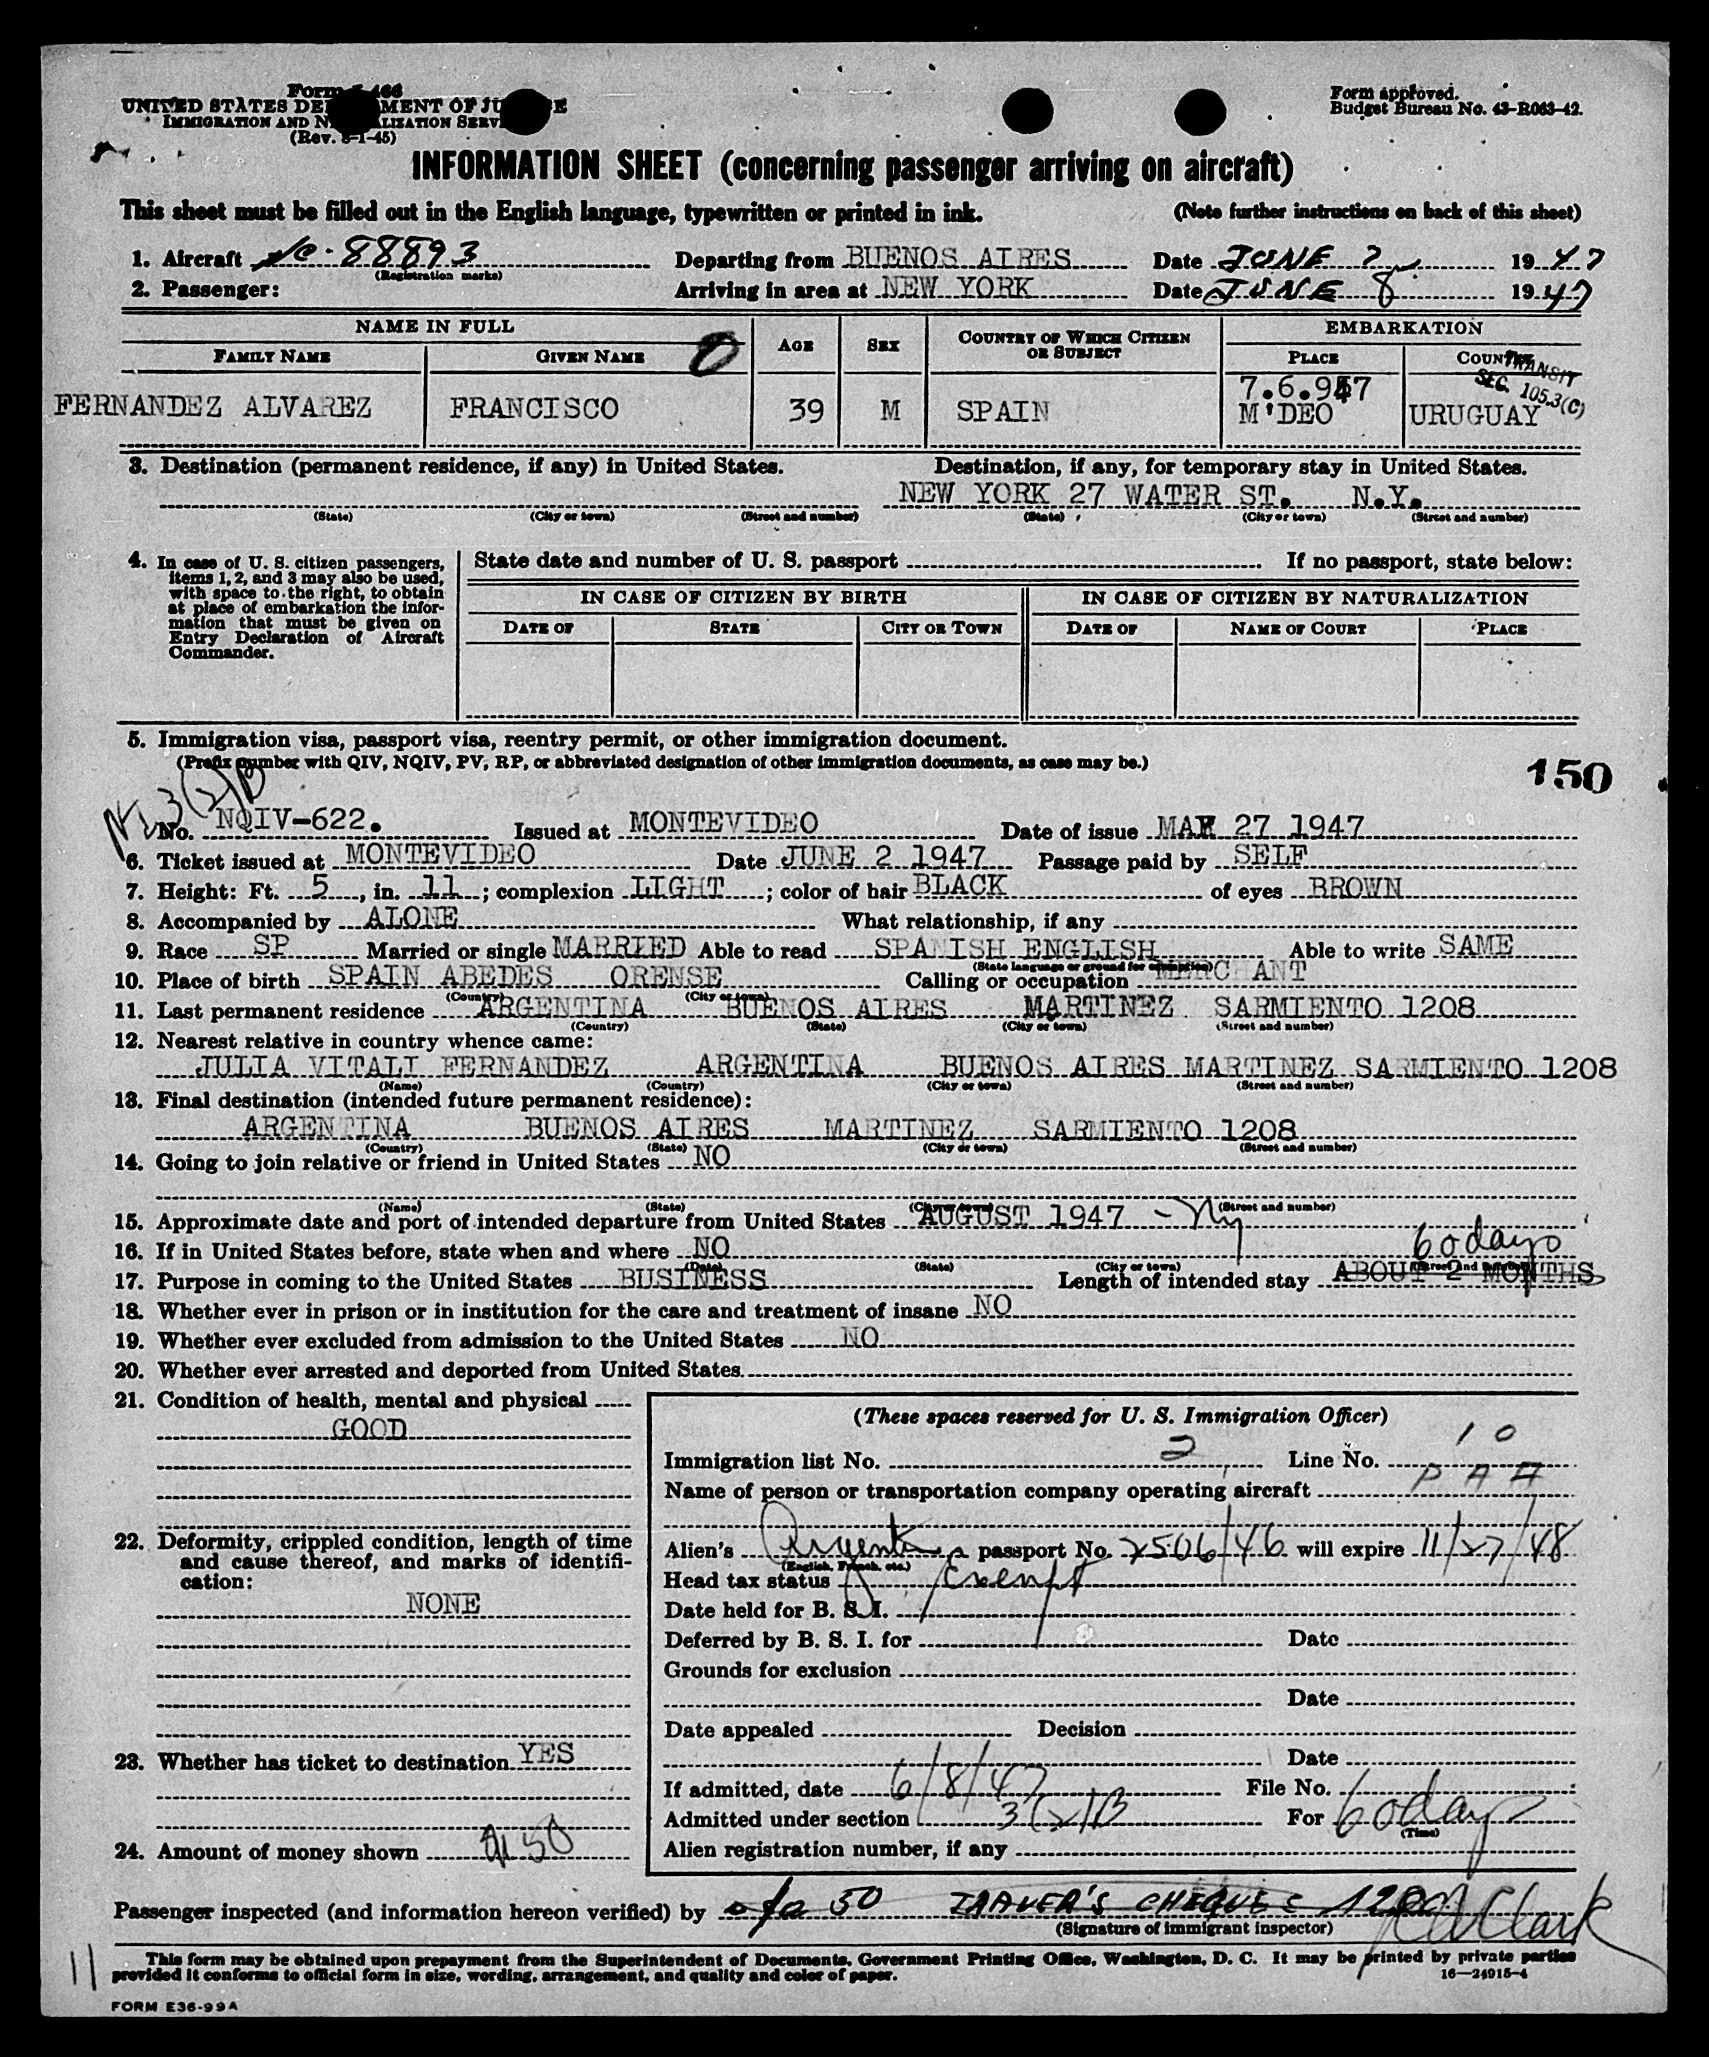 Form I-466
UNITED STATES DEPARTMENT OF JUSTICE
IMMIGRATION AND NATURALIZATION SERVICE
(Rev. 8-1-45)
Form approved.
Budget Bureau No. 43-R063-42.
INFORMATION SHEET (concerning passenger arriving on aircraft)
This sheet must be filled out in the English language, typewritten or printed in ink. (Note further instructions on back of this sheet)
1. Aircraft NC-88893 Departing from BUENOS AIRES Date JUNE 7 1947
(Registration marks)
2. Passenger: Arriving in area at NEW YORK Date JUNE 8 1947
NAME IN FULL AGE SEX COUNTRY OF WHICH CITIZEN OR SUBJECT EMBARKATION
FAMILY NAME GIVEN NAME PLACE COUNTRY
TRANSIT
SEC. 105.3(C)
7.6.947
FERNANDEZ ALVAREZ FRANCISCO 39 M SPAIN M'DEO URUGUAY
3. Destination (permanent residence, if any) in United States. Destination, if any, for temporary stay in United States.
NEW YORK 27 WATER ST. N.Y.
(State) (City or town) (Street and number) (State) (City or town) (Street and number)
4. In case of U. S. citizen passengers, items 1, 2, and 3 may also be used, with space to the right, to obtain at place of embarkation the information that must be given on Entry Declaration of Aircraft Commander.
State date and number of U. S. passport If no passport, state below:
IN CASE OF CITIZEN BY BIRTH IN CASE OF CITIZEN BY NATURALIZATION
DATE OF STATE CITY OR TOWN DATE OF NAME OF COURT PLACE
5. Immigration visa, passport visa, reentry permit, or other immigration document.
(Prefix number with QIV, NQIV, PV, RP, or abbreviated designation of other immigration documents, as case may be.)
150
3(2)B
No. NQIV-622. Issued at MONTEVIDEO Date of issue MAY 27 1947
6. Ticket issued at MONTEVIDEO Date JUNE 2 1947 Passage paid by SELF
7. Height: Ft. 5, in. 11; complexion LIGHT; color of hair BLACK of eyes BROWN
8. Accompanied by ALONE What relationship, if any
9. Race SP Married or single MARRIED Able to read SPANISH ENGLISH Able to write SAME
(State language or ground for exemption)
10. Place of birth SPAIN ABEDES ORENSE Calling or occupation MERCHANT
(Country) (City or town)
11. Last permanent residence ARGENTINA BUENOS AIRES MARTINEZ SARMIENTO 1208
(Country) (State) (City or town) (Street and number)
12. Nearest relative in country whence came:
JULIA VITALI FERNANDEZ ARGENTINA BUENOS AIRES MARTINEZ SARMIENTO 1208
(Name) (Country) (City or town) (Street and number)
13. Final destination (intended future permanent residence):
ARGENTINA BUENOS AIRES MARTINEZ SARMIENTO 1208
(Country) (State) (City or town) (Street and number)
14. Going to join relative or friend in United States NO
(Name) (State) (City or town) (Street and number)
15. Approximate date and port of intended departure from United States AUGUST 1947 - Ny
16. If in United States before, state when and where NO
60 days
(Date) (State) (City or town) (Street and number)
17. Purpose in coming to the United States BUSINESS Length of intended stay ABOUT 2 MONTHS
18. Whether ever in prison or in institution for the care and treatment of insane NO
19. Whether ever excluded from admission to the United States NO
20. Whether ever arrested and deported from United States
21. Condition of health, mental and physical
GOOD
22. Deformity, crippled condition, length of time and cause thereof, and marks of identification:
NONE
23. Whether has ticket to destination YES
24. Amount of money shown 50
(These spaces reserved for U. S. Immigration Officer)
Immigration list No. 2 Line No. 10
Name of person or transportation company operating aircraft PAA
Alien's Argentina passport No. 2506/46 will expire 11/27/48
(English, French, etc.)
Head tax status Exempt
Date held for B. S. I.
Deferred by B. S. I. for Date
Grounds for exclusion
Date
Date appealed Decision
Date
If admitted, date 6/8/47 File No.
Admitted under section 3(2)B For 60 days
(Time)
Alien registration number, if any
Passenger inspected (and information hereon verified) by 50 TRAVER'S CHEQUES Clark
(Signature of immigrant inspector)
11
This form may be obtained upon prepayment from the Superintendent of Documents, Government Printing Office, Washington, D. C. It may be printed by private parties
provided it conforms to official form in size, wording, arrangement, and quality and color of paper.
16—24915-4
FORM E36-99A